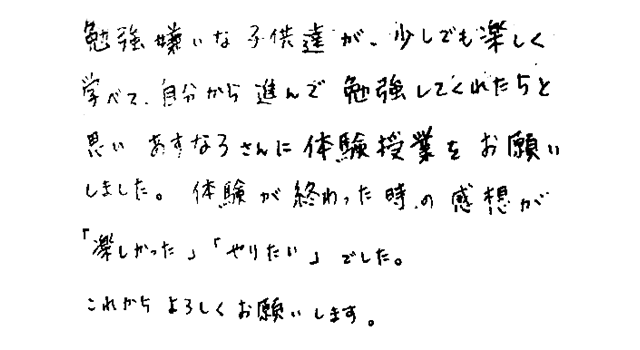 勉強嫌いな子供達が、少しでも楽しく
学べて、自分から進んで勉強してくれたらと
思いあすなろさんに体験授業をお願い
しました。体験が終わった時の感想が
「楽しかった」「やりたい」でした。
これからよろしくお願いします。